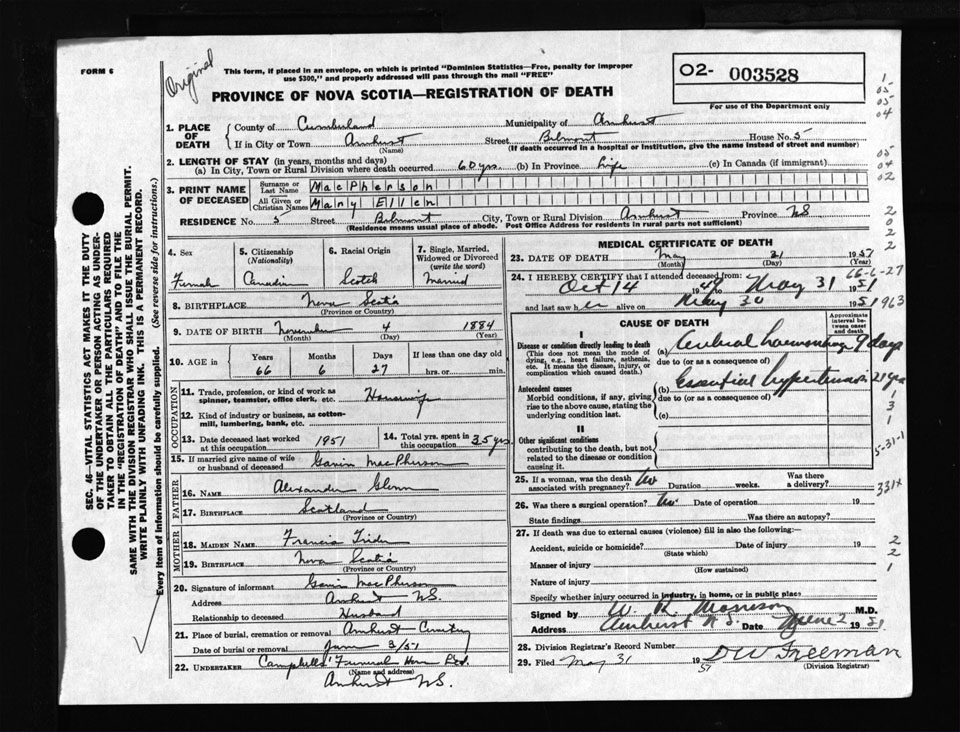 FORM 6
Original
This form, if placed in an envelope, on which is printed "Dominion Statistics—Free, penalty for improper
use $300," and properly addressed will pass through the mail "FREE"
PROVINCE OF NOVA SCOTIA—REGISTRATION OF DEATH
O2- 003528
For use of the Department only
1. PLACE OF DEATH
County of Cumberland Municipality of Amherst
If in City or Town Amherst Street Belmont House No. 5
(Name) (If death occurred in a hospital or Institution, give the name instead of street and number)
2. LENGTH OF STAY (in years, months and days)
(a) In City, Town or Rural Division where death occurred 60 yrs. (b) In Province Life (c) In Canada (if immigrant)
3. PRINT NAME OF DECEASED
Surname or Last Name MacPherson
All Given or Christian Names Mary Ellen
RESIDENCE No. 5 Street Belmont City, Town or Rural Division Amherst Province NS
(Residence means usual place of abode. Post Office Address for residents in rural parts not sufficient)
4. Sex
Female
5. Citizenship (Nationality)
Canadian
6. Racial Origin
Scotch
7. Single, Married, Widowed or Divorced (write the word)
Married
8. BIRTHPLACE Nova Scotia
(Province or Country)
9. DATE OF BIRTH November 4 1884
(Month) (Day) (Year)
10. AGE in Years Months Days If less than one day old
66 6 27 hrs. or min.
OCCUPATION
11. Trade, profession, or kind of work as
spinner, teamster, office clerk, etc. Housewife
12. Kind of industry or business, as cotton-
mill, lumbering, bank, etc.
13. Date deceased last worked
at this occupation 1951
14. Total yrs. spent in
this occupation 35 yrs
15. If married give name of wife
or husband of deceased Gavin MacPherson
FATHER
16. NAME Alexander Glenn
17. BIRTHPLACE Scotland
(Province or Country)
MOTHER
18. MAIDEN NAME Francis
19. BIRTHPLACE Nova Scotia
(Province or Country)
20. Signature of informant Gavin MacPherson
Address Amherst NS.
Relationship to deceased Husband
21. Place of burial, cremation or removal Amherst Cemetery
Date of burial or removal June 3/51
22. UNDERTAKER Campbells' Funeral Home Ltd.
(Name and address)
Amherst NS.
MEDICAL CERTIFICATE OF DEATH
23. DATE OF DEATH May 31 1951
(Month) (Day) (Year)
24. I HEREBY CERTIFY that I attended deceased from
Oct 14 1949 to May 31 1951
and last saw her alive on May 30 1951
66-6-27
963
CAUSE OF DEATH
Approximate interval between onset and death
I
Disease or condition directly leading to death
(This does not mean the mode of
dying, e.g., heart failure, asthenia,
etc. It means the disease, injury, or
complication which caused death.)
(a) Cerebral haemorrhage 9 days
due to (or as a consequence of)
Antecedent causes
Morbid conditions, if any, giving
rise to the above cause, stating the
underlying condition last.
(b) Essential hypertension
due to (or as a consequence of)
(c)
II
Other significant conditions
contributing to the death, but not
related to the disease or condition
causing it.
5-31-1
331+
25. If a woman, was the death
associated with pregnancy? No Duration weeks. Was there
a delivery?
26. Was there a surgical operation? No Date of operation 19
State findings Was there an autopsy?
27. If death was due to external causes (violence) fill in also the following:
Accident, suicide or homicide? Date of injury 19
(State which)
Manner of injury
(How sustained)
Nature of injury
Specify whether injury occurred in industry, in home, or in public place
Signed by W. R. Morrison M.D.
Address Amherst N.S. Date June 2 1951
28. Division Registrar's Record Number
29. Filed May 31 1951
D W Freeman
(Division Registrar)
SEC. 46—VITAL STATISTICS ACT MAKES IT THE DUTY
OF THE UNDERTAKER OR PERSON ACTING AS UNDER-
TAKER TO OBTAIN ALL THE PARTICULARS REQUIRED
IN THE "REGISTRATION OF DEATH" AND TO FILE THE
SAME WITH THE DIVISION REGISTRAR WHO SHALL ISSUE THE BURIAL PERMIT.
WRITE PLAINLY WITH UNFADING INK. THIS IS A PERMANENT RECORD.
Every item of information should be carefully supplied. (See reverse side for instructions.)